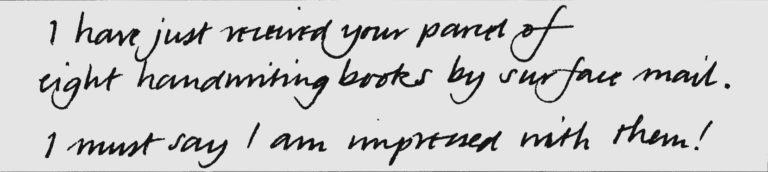 I have just received your parcel of
eight handwriting books by surface mail.
I must say I am impressed with them!